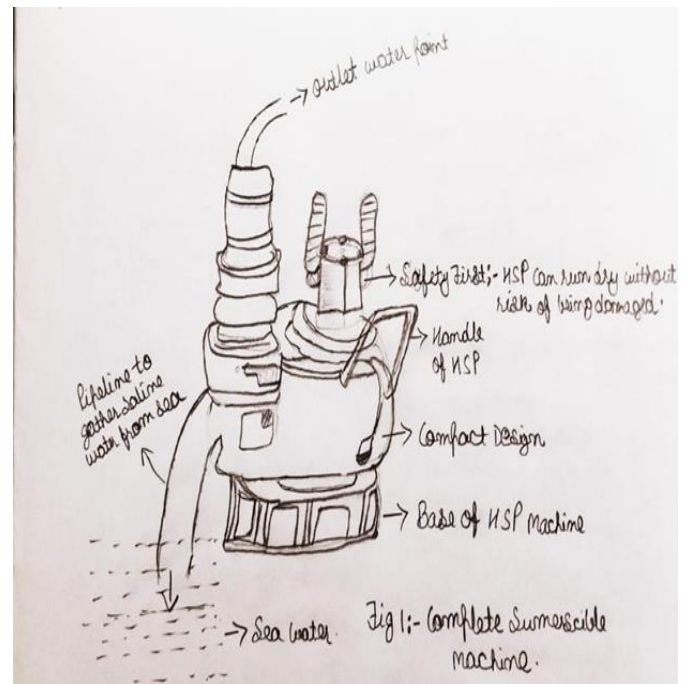 outlet water Point
Safety First;- HSP can run dry without
risk of being damaged.
Handle
of HSP
Pipeline to
gather saline
water from sea
Compact Design
Base of HSP Machine
Sea water.
Fig 1:- Complete Sumerscible
machine.